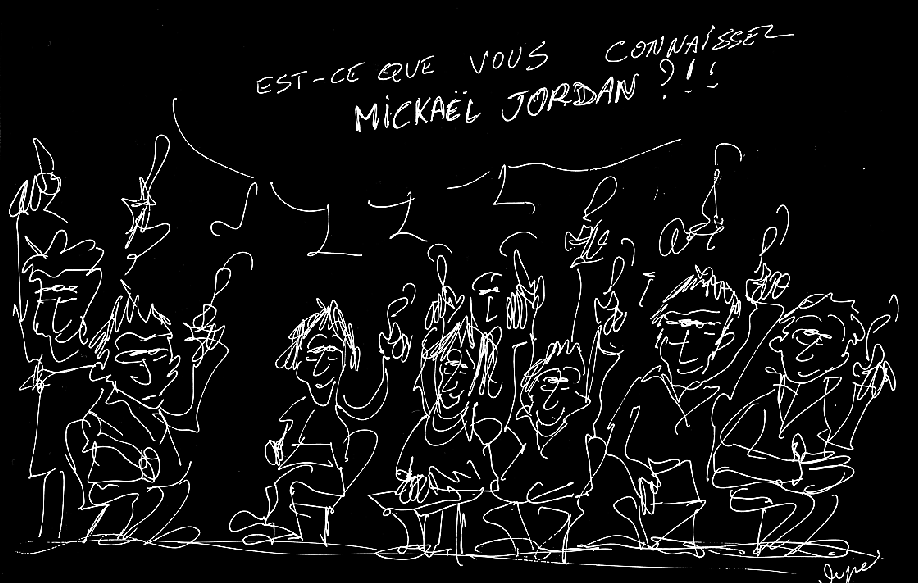 EST-CE QUE VOUS CONNAISSEZ
MICKAËL JORDAN ?!!